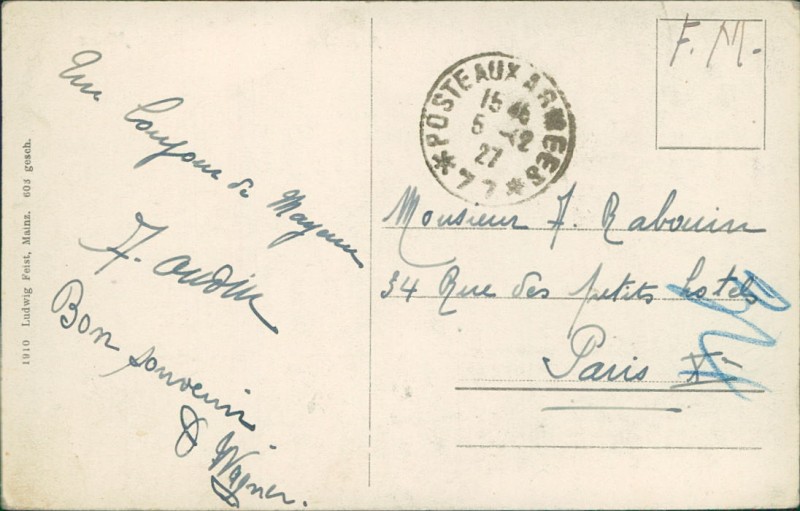 Un bonjour de Mayence
F. Oudin
Bon souvenir
D Wagner.
1910 Ludwig Feist, Mainz. 603 gesch.
*POSTE AUX ARMEES*
15 46
5 -12
27
77
F. M.
Monsieur F. Rabouin
34 Rue des petits hotels
Paris Xe